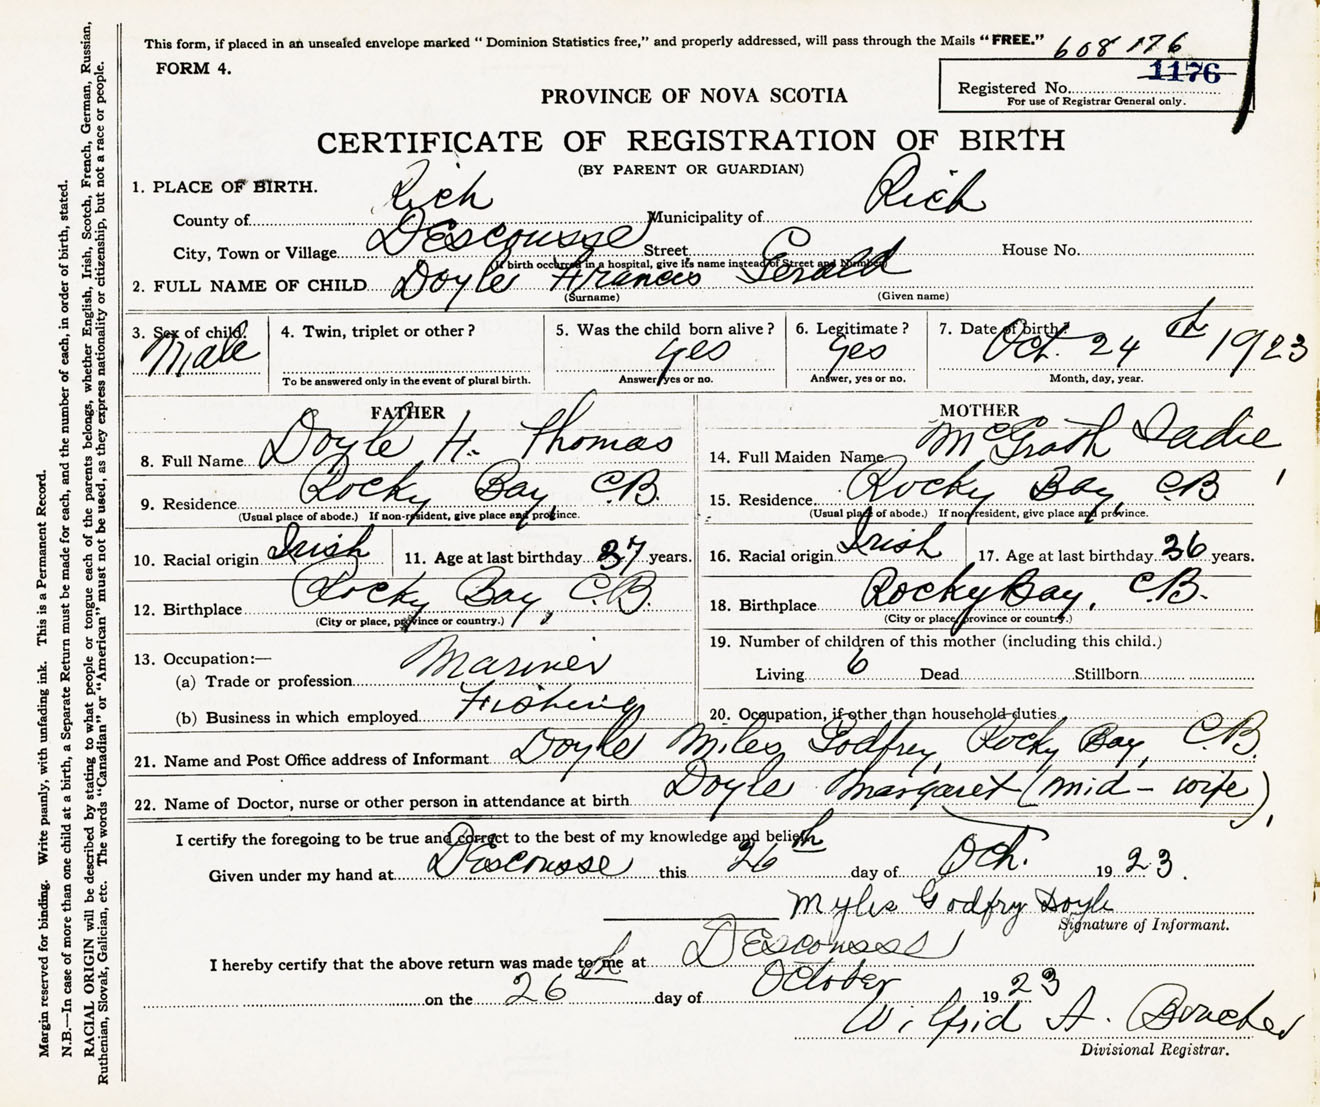 This form, if placed in an unsealed envelope marked "Dominion Statistics free," and properly addressed, will pass through the Mails "FREE."
608 176
FORM 4.
1176
Registered No.
For use of Registrar General only.
PROVINCE OF NOVA SCOTIA
CERTIFICATE OF REGISTRATION OF BIRTH
(BY PARENT OR GUARDIAN)
1. PLACE OF BIRTH.
County of Rich Municipality of Rich
City, Town or Village Descousse Street House No.
(If birth occurred in a hospital, give its name instead of Street and Number)
2. FULL NAME OF CHILD Doyle Francis Gerald
(Surname) (Given name)
3. Sex of child. 4. Twin, triplet or other? 5. Was the child born alive? 6. Legitimate? 7. Date of birth?
Male yes yes Oct. 24th 1923
To be answered only in the event of plural birth. Answer yes or no. Answer, yes or no. Month, day, year.
FATHER
8. Full Name Doyle H. Thomas
9. Residence Rocky Bay, C.B.
(Usual place of abode.) If non-resident, give place and province.
10. Racial origin Irish 11. Age at last birthday 37 years.
12. Birthplace Rocky Bay, C.B.
(City or place, province or country.)
13. Occupation:—
(a) Trade or profession Mariner
(b) Business in which employed Fishing
MOTHER
14. Full Maiden Name McGrath Sadie
15. Residence Rocky Bay, C.B
(Usual place of abode.) If non-resident, give place and province.
16. Racial origin Irish 17. Age at last birthday 36 years.
18. Birthplace Rocky Bay, C.B.
(City or place, province or country.)
19. Number of children of this mother (including this child.)
Living 6 Dead Stillborn
20. Occupation, if other than household duties
21. Name and Post Office address of Informant Doyle Miles Godfrey, Rocky Bay, C.B.
22. Name of Doctor, nurse or other person in attendance at birth Doyle Margaret (mid-wife),
I certify the foregoing to be true and correct to the best of my knowledge and belief.
Given under my hand at Descousse this 26th day of Oct. 1923.
Myles Godfry Doyle
Signature of Informant.
I hereby certify that the above return was made to me at Descousse
on the 26th day of October 1923
Wilfrid A. Boucher
Divisional Registrar.
Margin reserved for binding. Write plainly, with unfading ink. This is a Permanent Record.
N.B.—In case of more than one child at a birth, a Separate Return must be made for each, and the number of each, in order of birth, stated.
RACIAL ORIGIN will be described by stating to what people or tongue each of the parents belongs, whether English, Irish, Scotch, French, German, Russian,
Ruthenian, Slovak, Galician, etc. The words "Canadian" or "American" must not be used, as they express nationality or citizenship, but not a race or people.